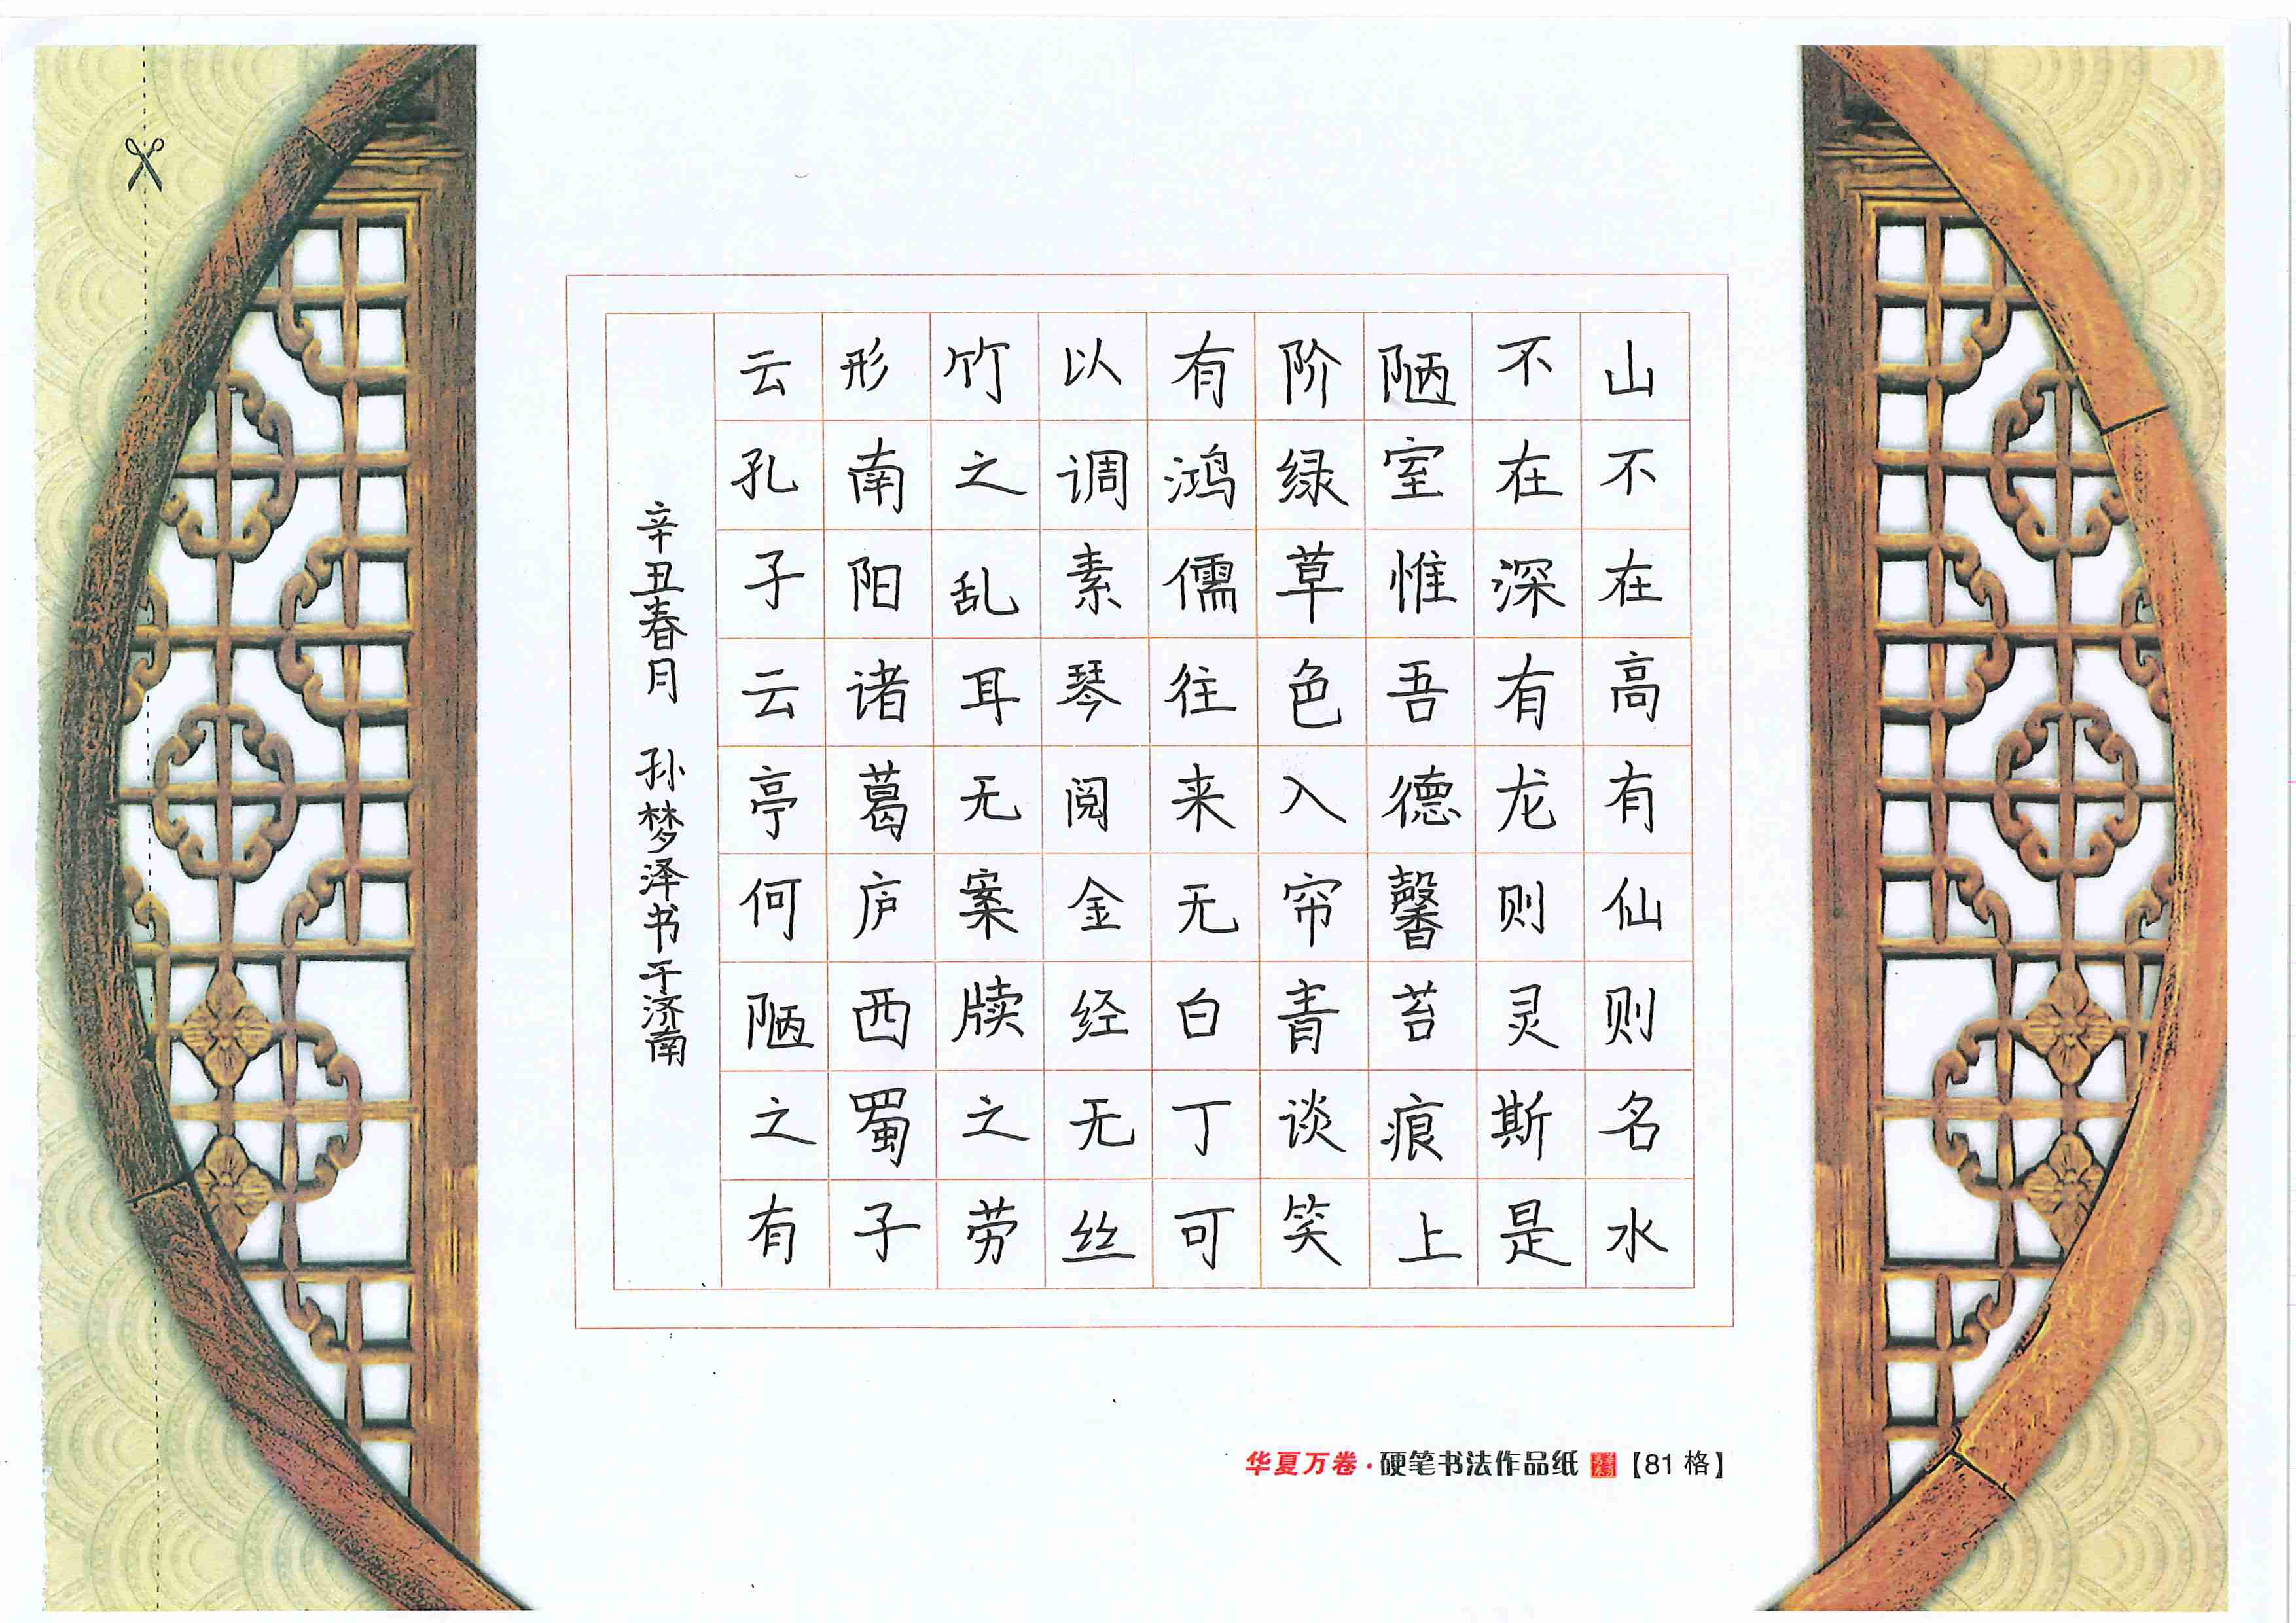 山不在高有仙则名水
不在深有龙则灵斯是
陋室惟吾德馨苔痕上
阶绿草色入帘青谈笑
有鸿儒往来无白丁可
以调素琴阅金经无丝
竹之乱耳无案牍之劳
形南阳诸葛庐西蜀子
云孔子云亭何陋之有
辛丑春月 孙梦泽书于济南
华夏万卷·硬笔书法作品纸【81格】